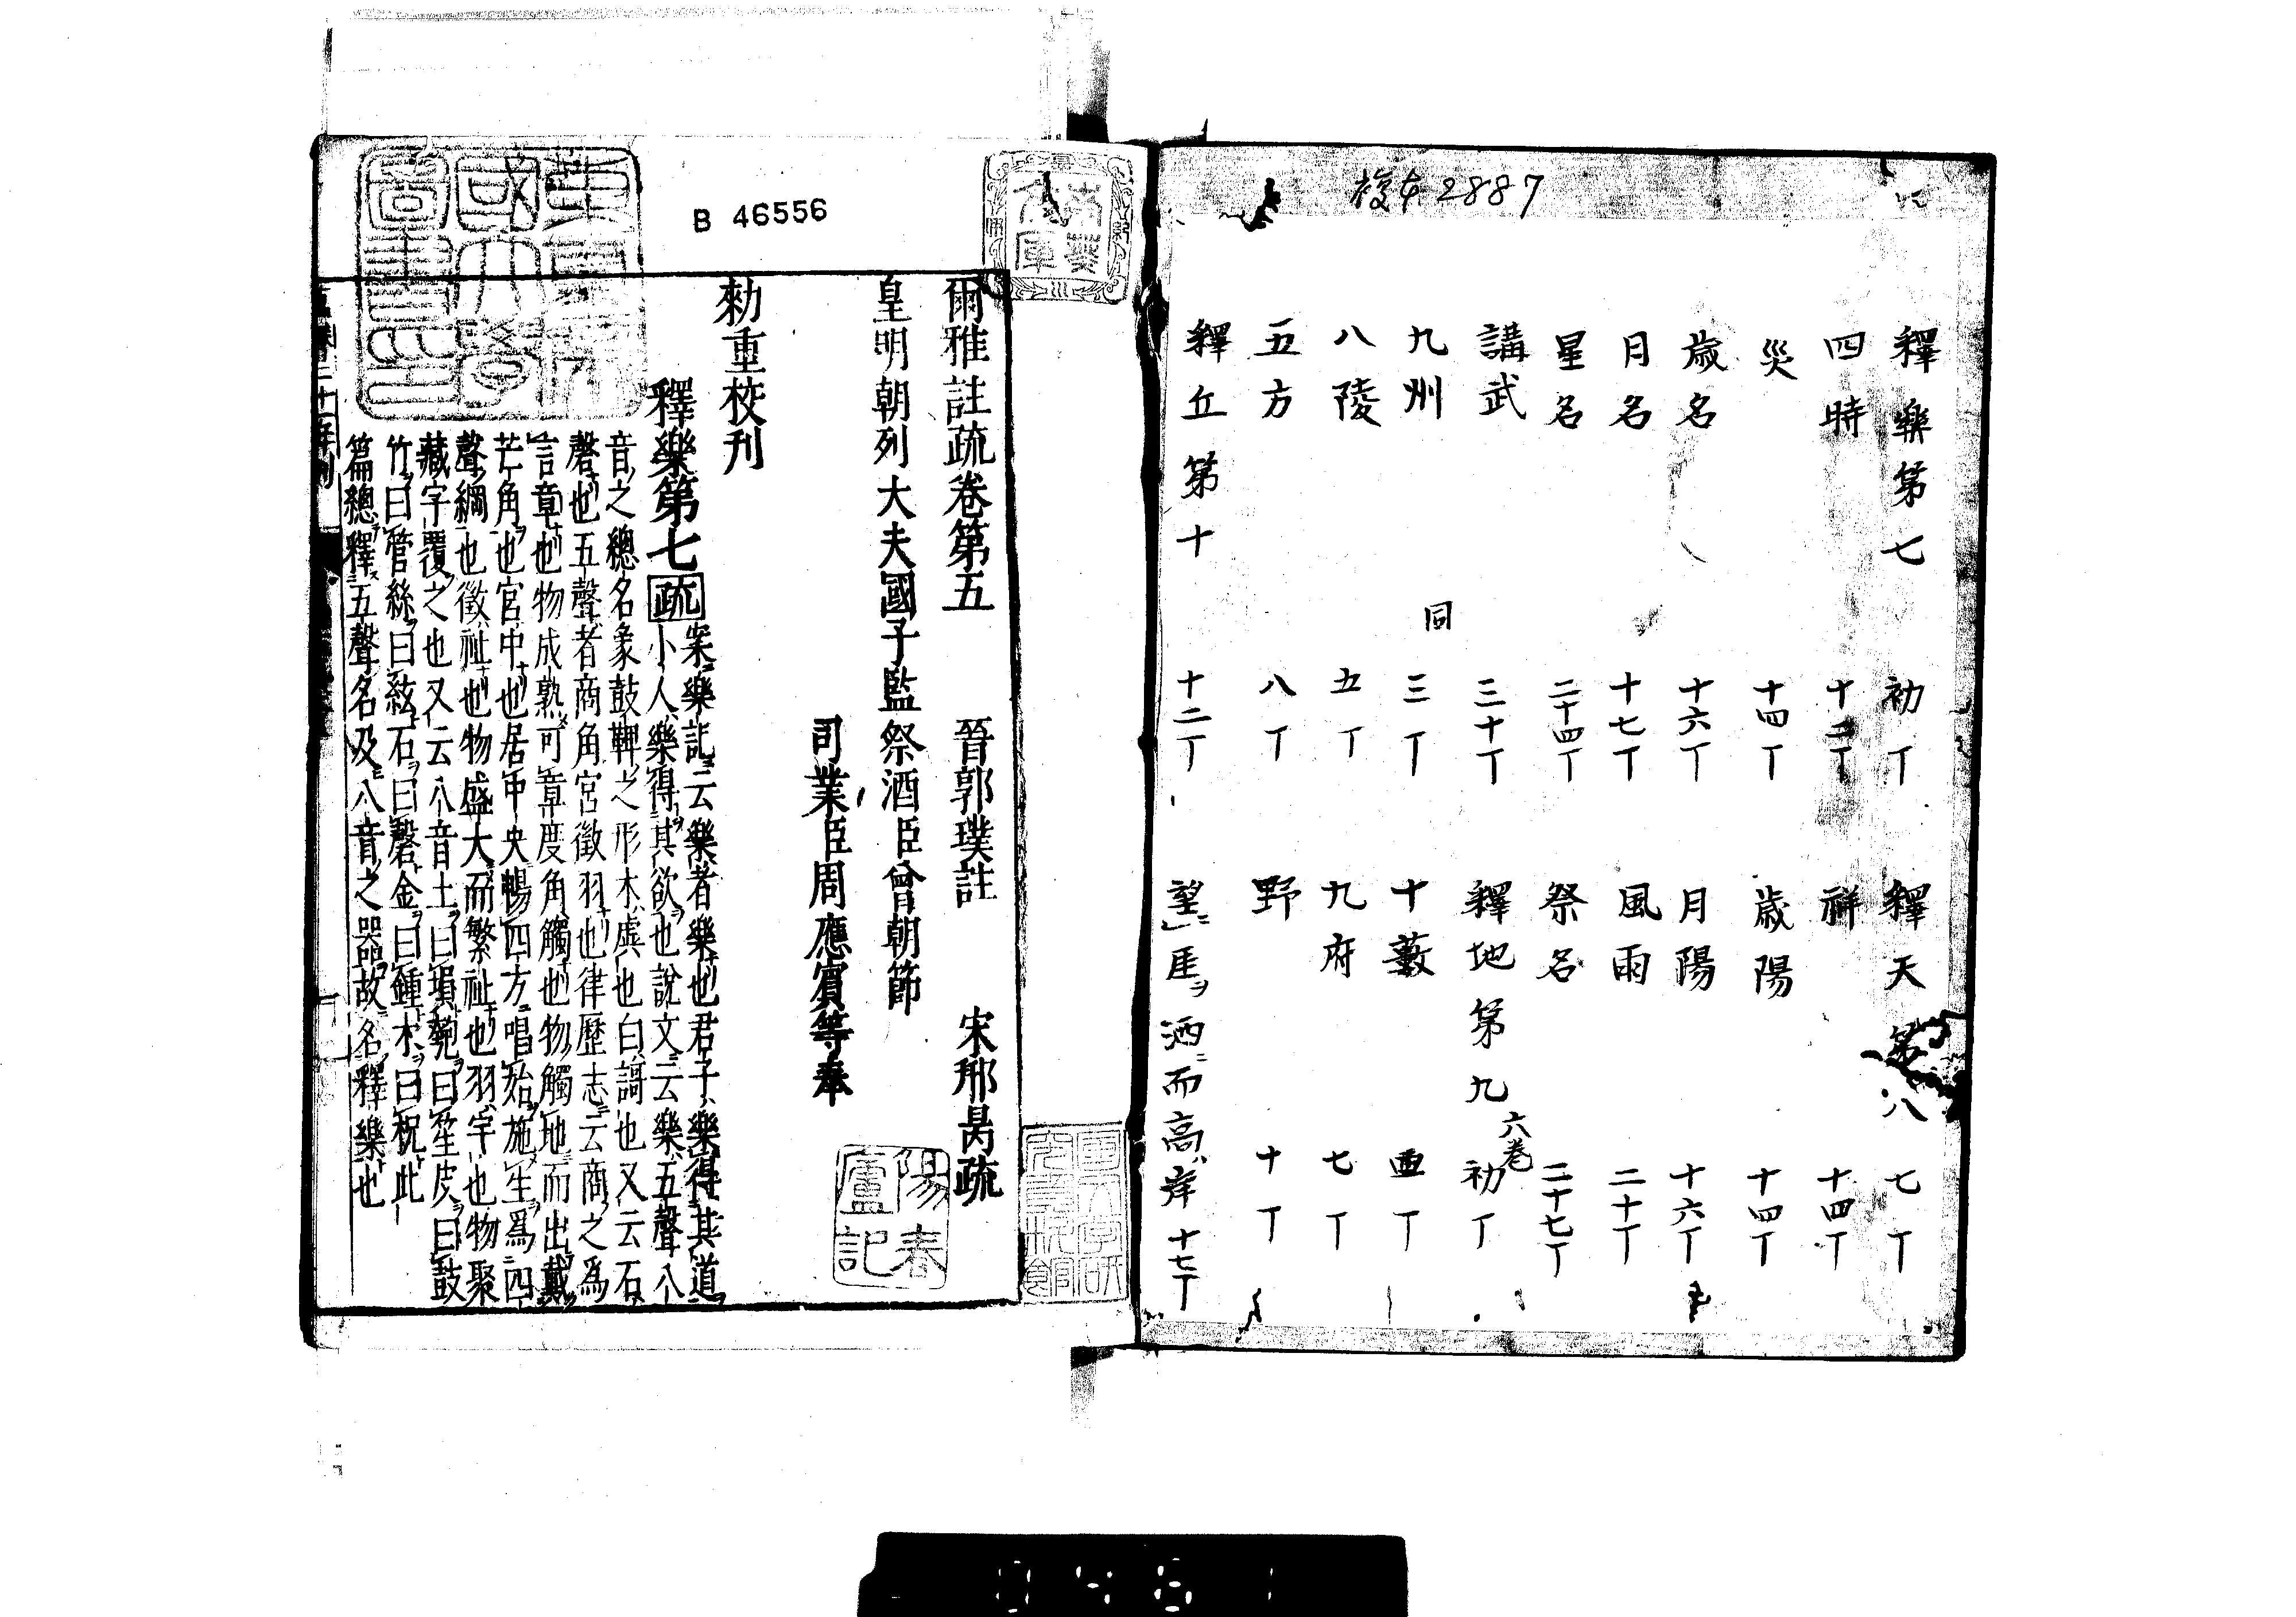 複本2887
釋樂第七 初丁 釋天第八 七丁
四時 十二丁 祥 十四丁
災 十四丁 歲陽 十四丁
歲名 十六丁 月陽 十六丁
月名 十七丁 風雨 二十丁
星名 二十四丁 祭名 二十七丁
講武 三十丁 釋地第九 六卷 初丁
九州 同 三丁 十藪 丁
八陵 五丁 九府 七丁
五方 八丁 野 十丁
釋丘第十 十二丁 望厓洒而高岸 十七丁
B 46556
爾雅註疏卷第五 晉郭璞註 宋邢昺疏
皇明朝列大夫國子監祭酒臣曾朝節
司業臣周應賓等奉
勅重校刊
釋樂第七 疏 案樂記云樂者樂也君子樂得其道
小人樂得其欲也說文云樂五聲八
音之總名象鼓鞞之形木虡也白謌也又云石
磬也五聲者商角宮徵羽也律歷志云商之為
言章也物成熟可章度角觸也物觸地而出戴
芒角也宮中也居中央暢四方唱始施生為四
聲綱也徵祉也物盛大而繁祉也羽宇也物聚
藏宇覆之也又云八音土曰塤匏曰笙皮曰鼓
竹曰管絲曰絃石曰磬金曰鍾木曰柷此
篇總釋五聲名及八音之器故名釋樂也
東京帝國大學圖書印
南葵文庫
陽春廬記